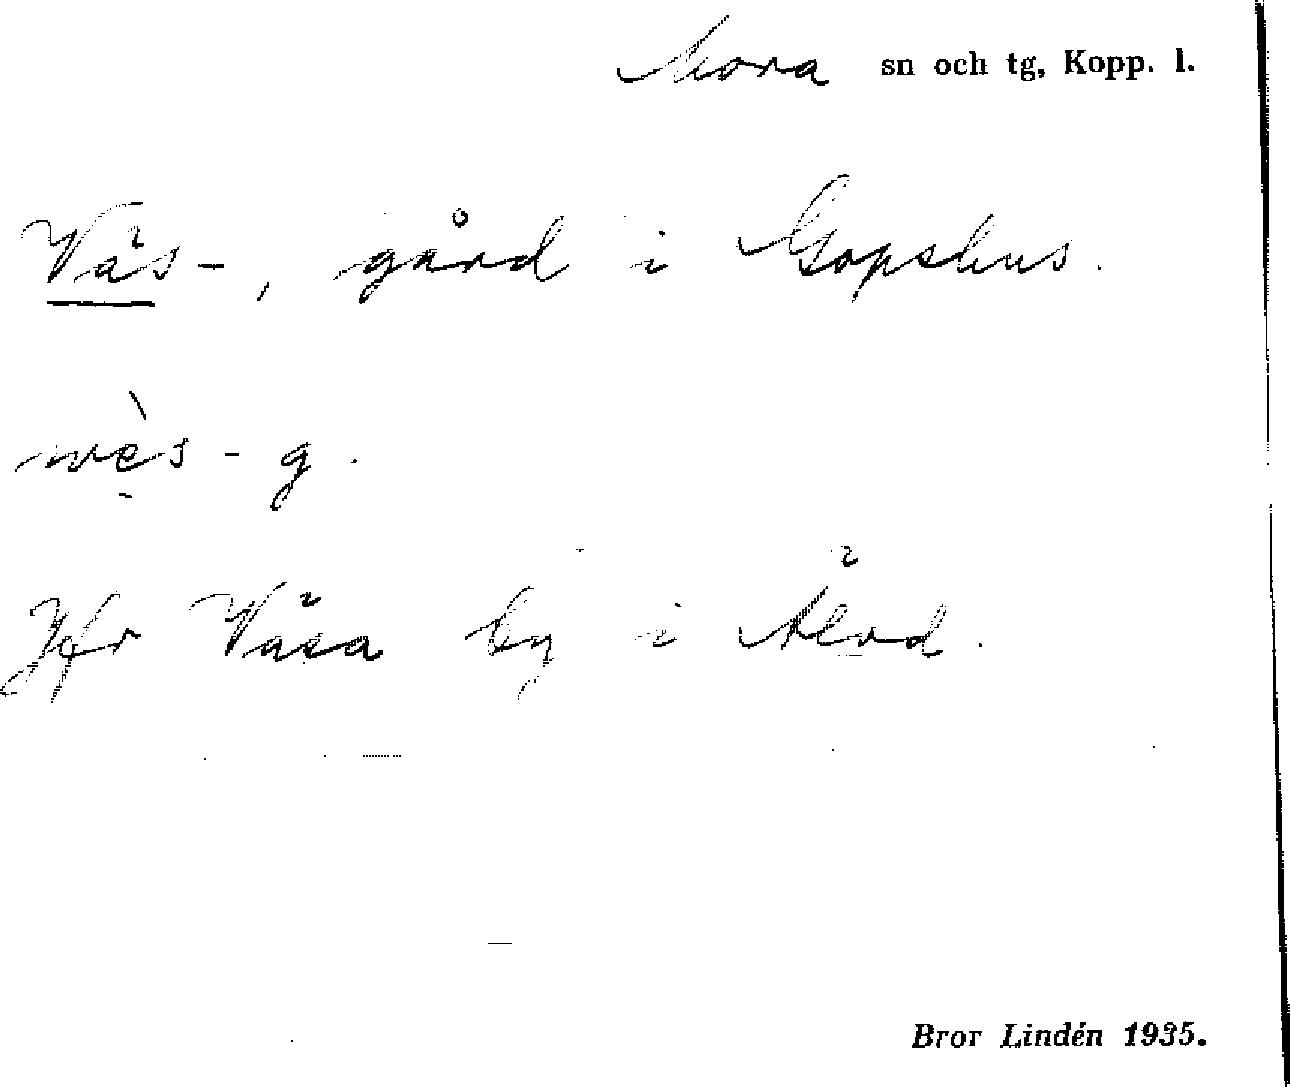 Mora sn och tg, Kopp. l.
Väs-, gård i Gopshus.
wè̱s - g.
Jfr Väsa by i Älvd.
Bror Lindén 1935.